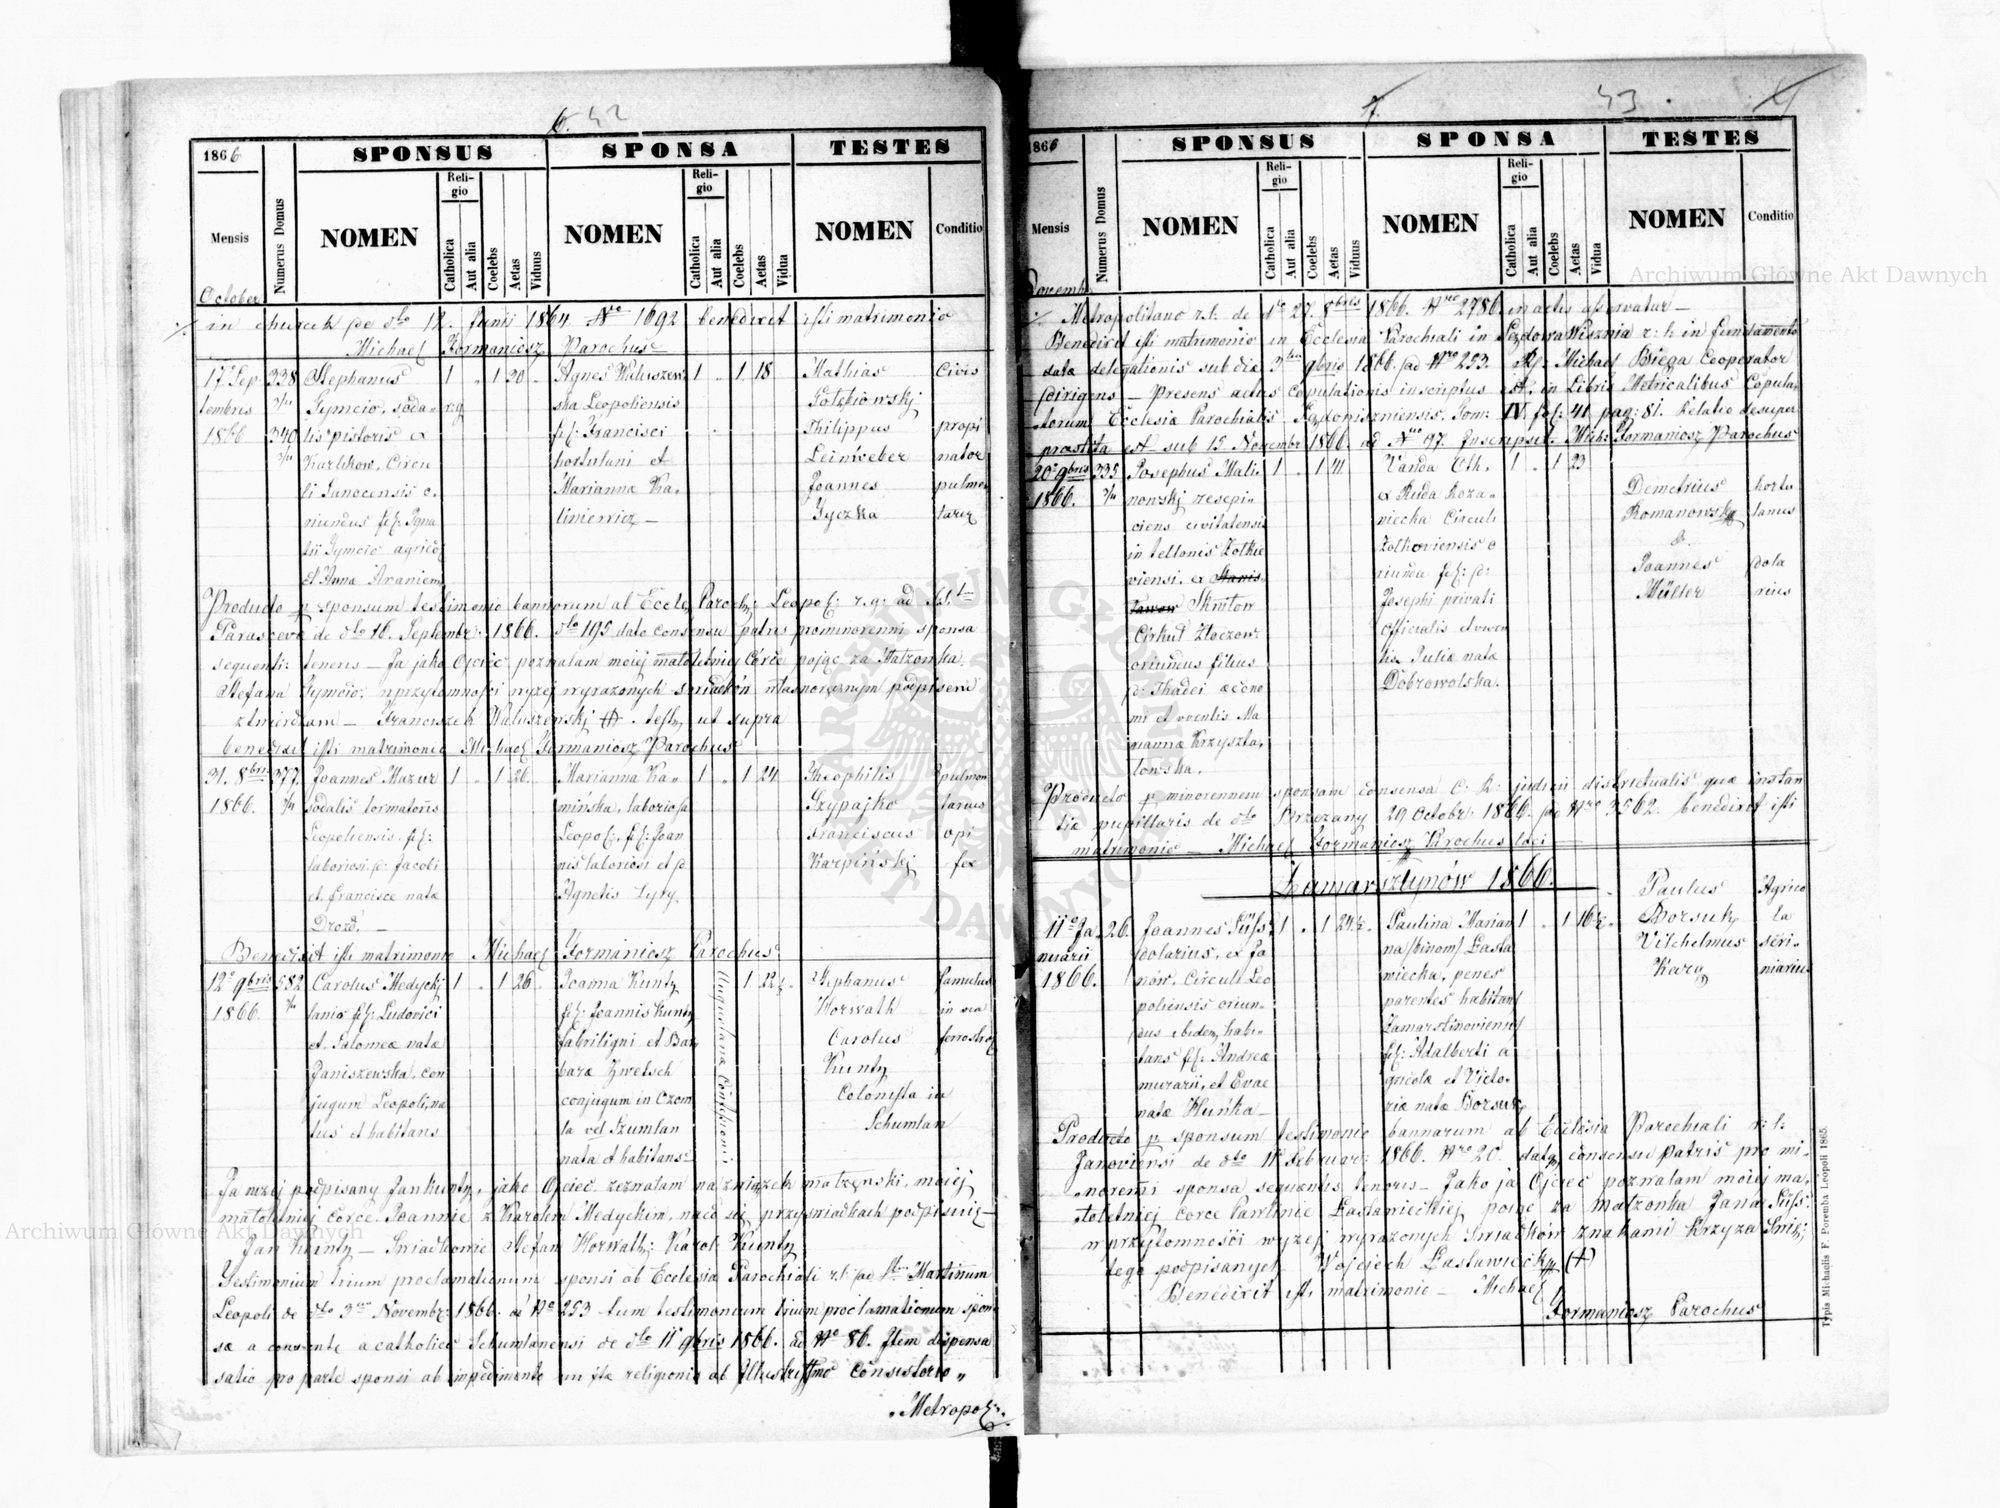 6. 42
1866
SPONSUS
SPONSA
TESTES
Mensis
Numerus Domus
NOMEN
Religio
Catholica
Aut alia
Coelebs
Aetas
Viduus
NOMEN
Religio
Catholica
Aut alia
Coelebs
Aetas
Vidua
NOMEN
Conditio
October
in church de dto 12. Junii 1864 Nro 1692 benedixit isti matrimonio
Michael Formaniosz Parochus
17 Sep-
tembris
1866
338
3/4
340
3/4
Stephanus
Gymcio, soda-
lis pistoris ex
Kurlikow, Circu
li Sanocensis o-
riundus fil: Igna
tii Gymcio agricola
et Anna Araniem
1 " 1 30 "
r.g
Agnes Waluszew-
ska Leopoliensis
fil: Francisci
hortulani et
Marianna Ka-
liniewicz —
1 " 1 18
Mathias
Gołękiowskj
Philippus
Leinweber
Joannes
Gyczka
Civis
propi
nator
pulmen
tariq
Producto p sponsum testimonio bannorum ab Eccle Paroch: Leopol: r.g. ad Sct
Parasceve de dto 16. Septembr: 1866. dto 195 dato consensu patris prominorenni sponsa
sequenti: teneris — Ja jako Ojciec pozwalam mojej małoletniej Córce pojąc za Małzonka
Stefana Gymcio, w przytomności wyzej wyrazonych swiadków własnoręcznym podpisem
ztwierdzam — Franciszek Waluszenskj (+) testes ut supra
benedixit isti matrimonio Michael Formaniosz Parochus
31. 8bris
1866.
377
3/4
Joannes Mazur
sodalis tormatoris
Leopoliensis. fil:
laboriosi. p: Jacobi
et Francisce nata
Drozd. —
1 " 1 26.
Marianna Ka-
mińska, laboriosa
Leopol:, fil: Joan
nis laboriosi et p
Agnetis Lyty
1 " 1 24
Theophilis
Szypajko
Franciscus
Karpińskj
pulmen
tarius
opi
fex
Benedixit isti matrimonio Michael Formaniosz Parochus
12 9bris
1866.
582
3/4
Carolus Medyckj
lanio fil: Ludovici
et Salomea nata
Janiszewska, con
jugum Leopoli, na
tus et habitans
1 " 1 26
Joanna Kuntz
fil: Joannis Kuntz
fabriligni et Bar
bara Zwetsch
conjugum in Czom
la vel Szumlan
nata et habitans
Augustana Confessioni
1 22 1/2
Stephanus
Horwath
Carolus
Kuntz
Colonista in
Schumlan
famulus
in via
ferrostrat
Ja nizej podpisany Jan Kuntz, jako Ojciec zeznałam na związek małzęnski, mojej
małoletniej córce Joannie z Karolem Medyckim, na co się przyswiadkach podpisuię —
Jan Kuntz — Swiadkowie Stefan Horwath: Karol Kuntz
Testimonium trium proclamationum sponsi ab Ecclesia Parochiali r.l. ad Stum Martinum
Leopoli de dto 3tia Novembr: 1866. ad No 253 tum testimonium trium proclamationum spon-
sæ a convente acatholico Schumlanensi de dto 11 9bris 1866. ad No 86. Item dispensa
satio pro parte sponsi ab impedimento mixtæ religionis ab Illustrissimo Consistorio "
"Metropol:
7. 43
1866
SPONSUS
SPONSA
TESTES
Mensis
Numerus Domus
NOMEN
Religio
Catholica
Aut alia
Coelebs
Aetas
Viduus
NOMEN
Religio
Catholica
Aut alia
Coelebs
Aetas
Vidua
NOMEN
Conditio
Novemb.
Metropolitano r.l. de dto 27. 8bris 1866. Nro 2786. in actis asservatur —
Benedixit isti matrimonio in Ecclesia Parochiali in Sądowa Wisznia r: l: in fundamento
data delegationis sub die 3tia 9bris 1866. ad Nro 253. Rf: Michael Biega Cooperator
dirigens — Presens actus copulationis inscriptus est, in Libris Metricalibus Copula-
torum Ecclesia Parochialis Sądowiszniensis. Tom: IV. fol: 41. pag: 81. Relatio desuper
præstita est sub 15 Novembr 1866. ad Nro 97. Inscripsit Mich: Formaniosz Parochus
20 9bris
1866.
335
3/4
Josephus Mali-
nowskj resepi-
ciens civitatensis
in tellonis Zolkie
viensi. ex Stanis-
Iwnitow
Cirkul Złoczow:
oriundus filius
p: Thadei œcono
mi et viventis Ma
rianna Krzyszta-
łowska.
1 " 1 41
Vanda Oth.
ex Ruda Roza-
niecka Circuli
Zolkoviensis o
riunda fil: p:
Josephi privati
officialis et viven
tis Julia nata
Dobrowolska.
1 " 1 23
Demetrius
Romanowskj
&
Joannes
Müller
hortu
lanus
dola
rius
Producto p minorennem sponsam consensu C. R. judicii districtualis qua instan
tia pupillaris de dto Brzezany 29 Octobr: 1866. ad Nro 3562. benedixit isti
matrimonio — Michael Formaniosz Parochus loci
Zamarsztynów 1866.
11 Ja-
nuarii
1866.
26.
Joannes Süss
dolarius, ex Ja
nów. Circuli Leo
poliensis oriun-
dus ibidem, habi-
tans fil: Andrea
murarii, et Evae
nata Hluńka —
1 " 1 24 1/2
Paulina Marian
na (binom) Lasta
wiecka, penes
parentes habitans
Zamarstinoviensis
fil: Adalberti a
gricolæ et Victo-
riæ nata Borsuk,
1 " 1 16 1/2
Paulus
Borsuk,
Vilhelmus
Karg
Agrico
la
scri-
niarius
Producto p sponsum testimonio bannorum ab Ecclesia Parochiali r: l:
Janoviensi de dto 11 Februar: 1866. Nro 20. dato, consensu patris pro mi-
norenni sponsa sequentis tenoris — Jako ja Ojciec pozwalam mojej ma-
łoletniej Corce Pawlinie Łastawieckiej pojąc za małzonka Jana Süss
w przytomności wyzej wyrazonych Swiadków znakami Krzyza Swię-
tego podpisanych Wojciech Łastawieckj (+)
Benedixit isti matrimonio — Michael
Formaniosz Parochus
Typis Michaelis F. Poremba Leopoli 1865.
Archiwum Główne Akt Dawnych
Archiwum Główne Akt Dawnych
ARCHIWUM GŁÓWNE AKT DAWNYCH